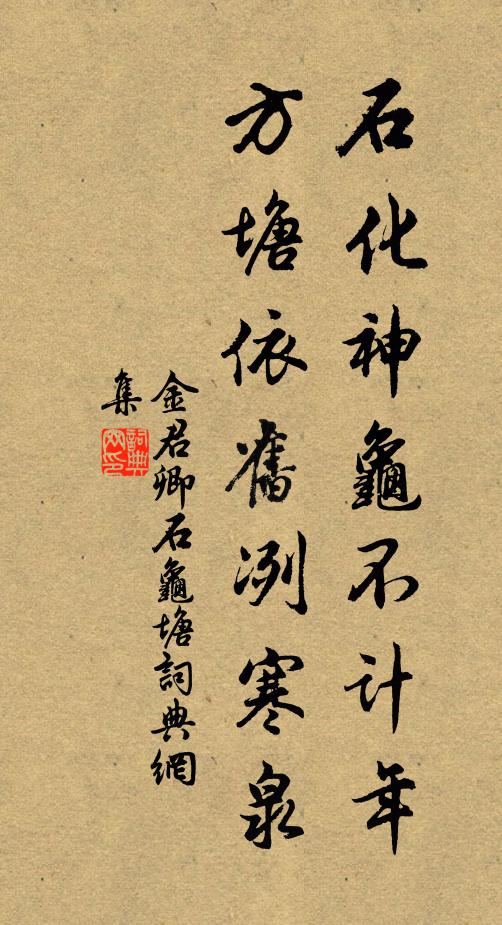 石化神龜不計年
方塘依舊冽寒泉
金君卿石龜塘詞典網
集
詞典網印